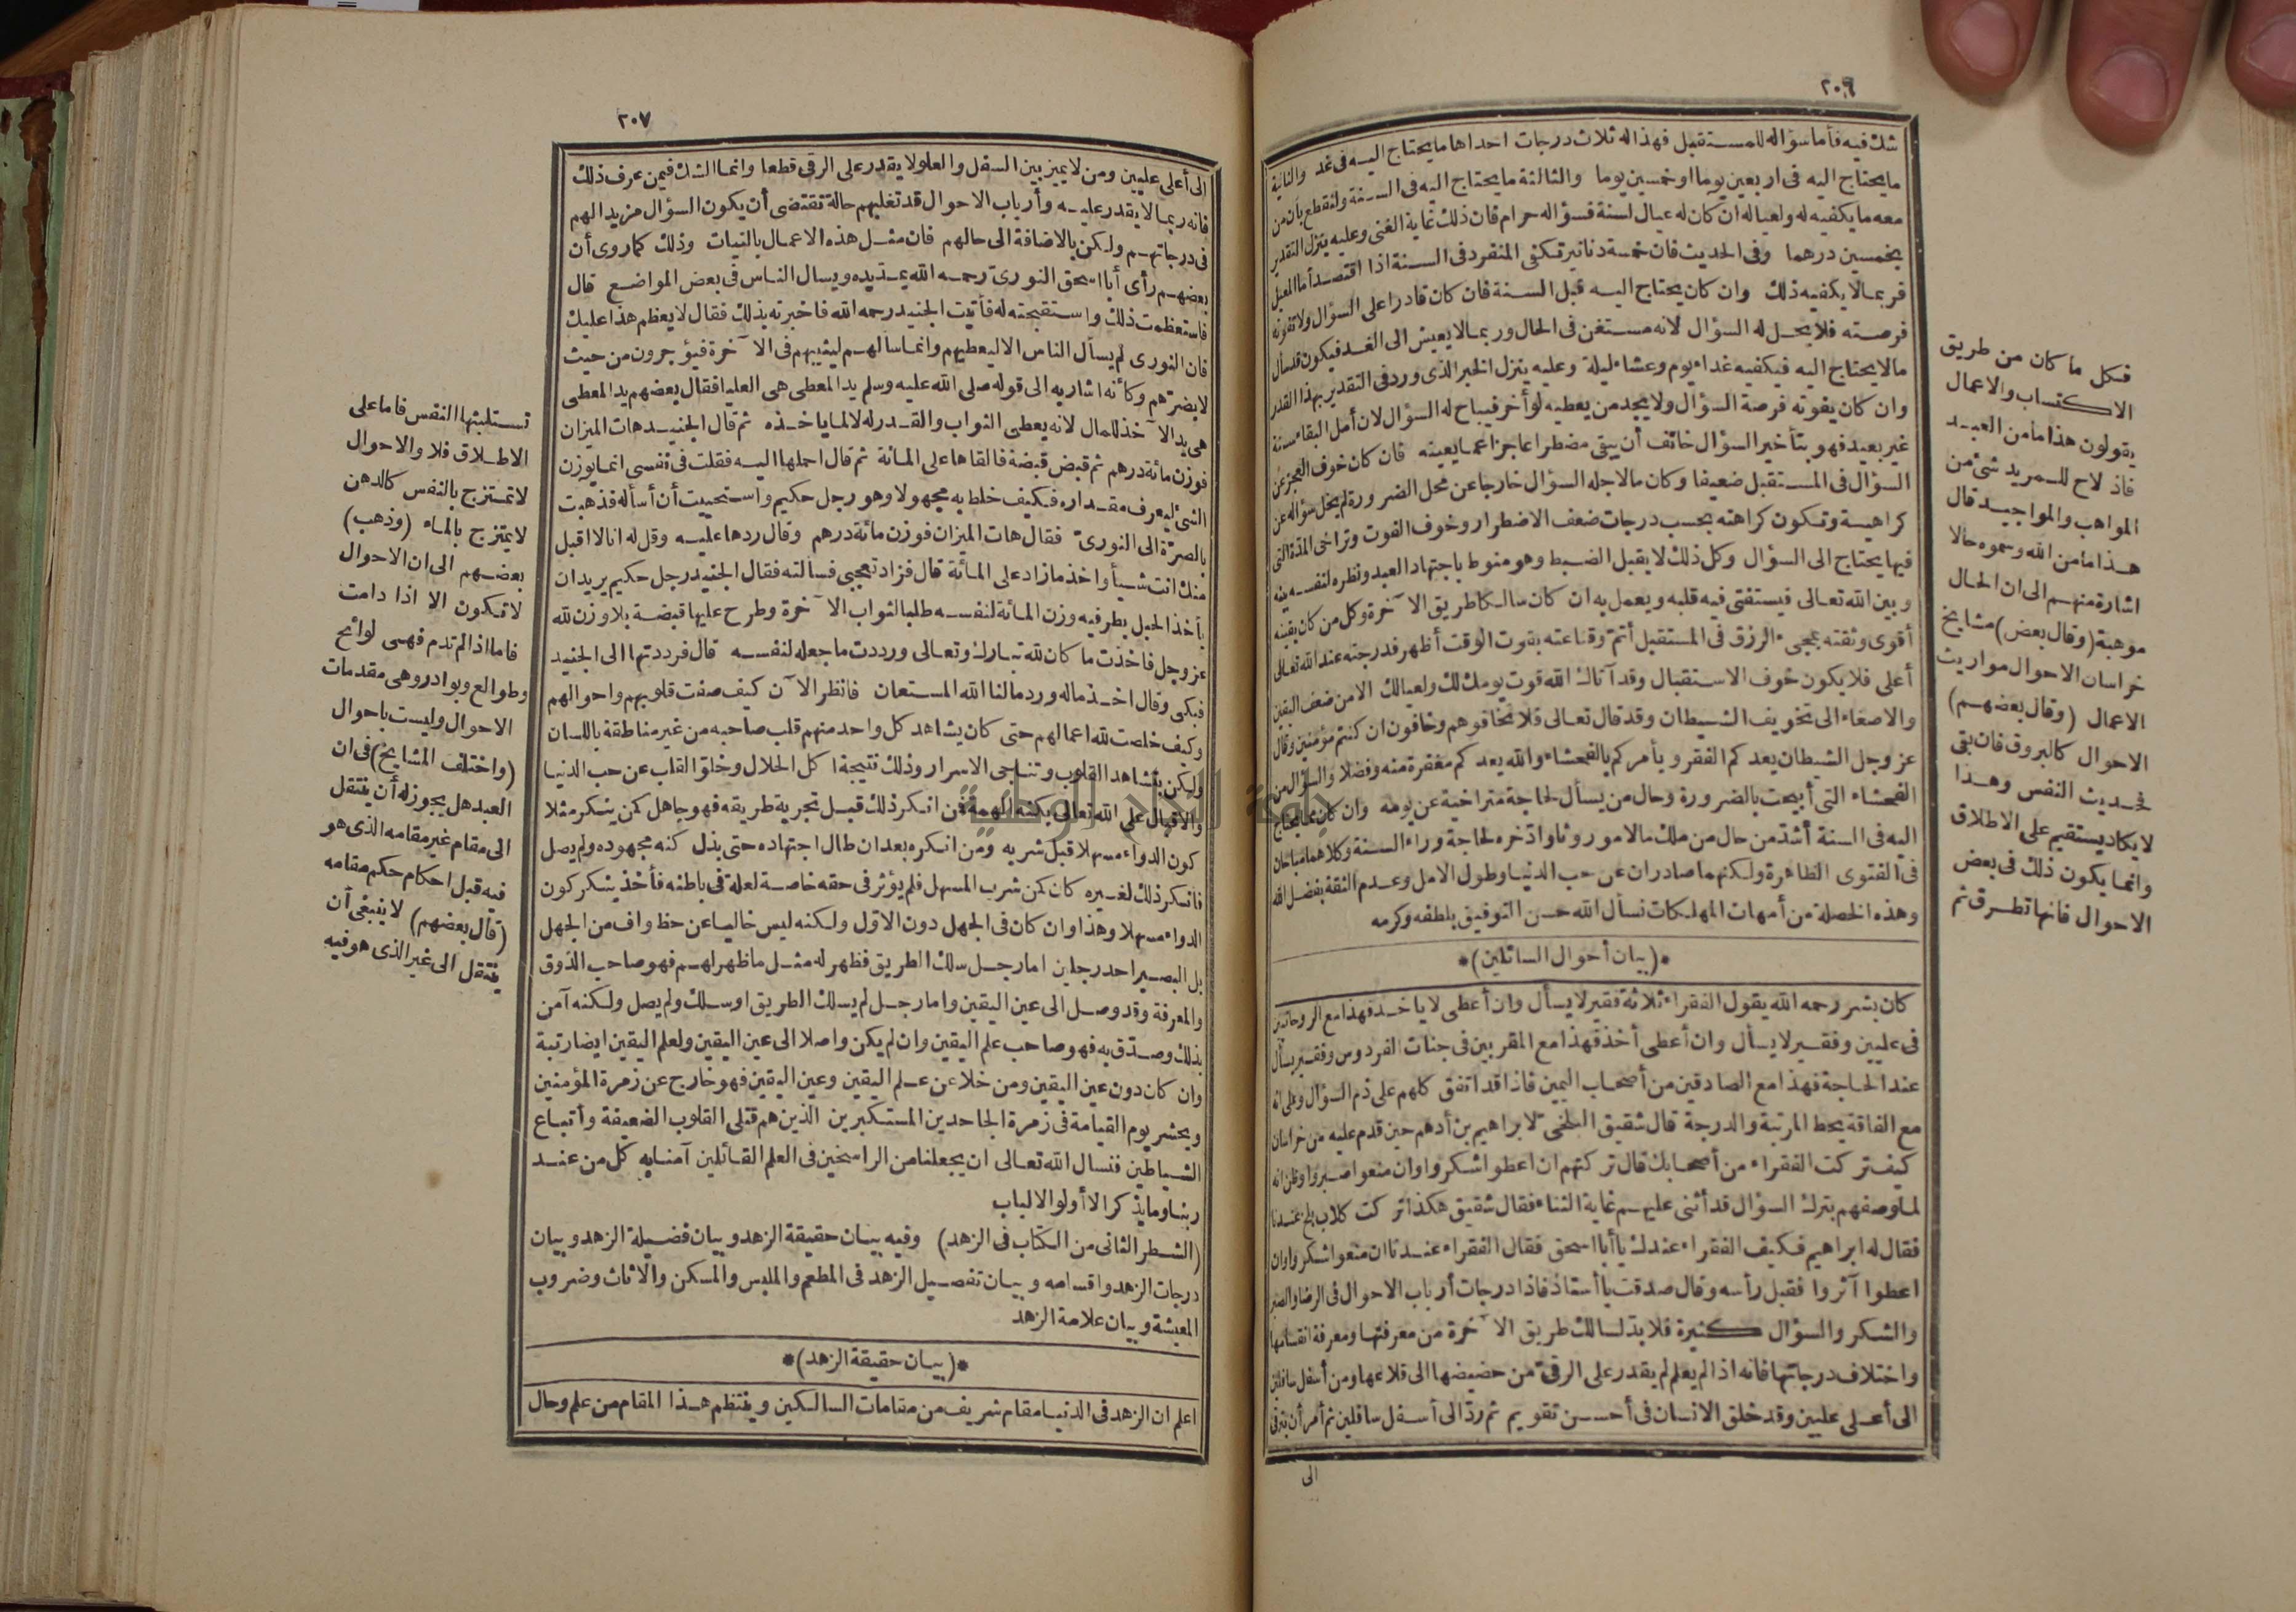 ٢٠٦
شك فيه فأما سؤاله للمستقبل فهذا له ثلاث درجات احداها ما يحتاج اليه فى غد والثانية
ما يحتاج اليه فى اربعين يوما او خمسين يوما والثالثة ما يحتاج اليه فى السنة ولنقطع بأن من
معه ما يكفيه له ولعياله ان كان له عيال لسنة فسؤاله حرام فان ذلك غاية الغنى وعليه ينزل التقدير
بخمسين درهما وفى الحديث فان خمسة دنانير تكفى المنفرد فى السنة اذا اقتصد أما المعيل
فربما لا يكفيه ذلك وان كان يحتاج اليه قبل السنة فان كان قادرا على السؤال ولا تفوته
فرصته فلا يحل له السؤال لانه مستغن فى الحال وربما لا يعيش الى الغد فيكون قد سأل
مالا يحتاج اليه فيكفيه غداء يوم وعشاء ليلة وعليه ينزل الخبر الذى ورد فى التقدير بهذا القدر
وان كان يفوته فرصة السؤال ولا يجد من يعطيه لو أخر فيباح له السؤال لان أمل البقاء سنة
غير بعيد فهو بتأخير السؤال خائف أن يبقى مضطرا عاجزا عما يعينه فان كان خوف العجز عن
السؤال فى المستقبل ضعيفا وكان مالاجله السؤال خارجا عن محل الضرورة لم يخل سؤاله عن
كراهية وتكون كراهته بحسب درجات ضعف الاضطرار وخوف الفوت وتراخى المدة التى
فيها يحتاج الى السؤال وكل ذلك لا يقبل الضبط وهو منوط باجتهاد العبد ونظره لنفسه بينه
وبين الله تعالى فيستفتى فيه قلبه ويعمل به ان كان سالكا طريق الآخرة وكل من كان يقينه
أقوى وثقته بمجىء الرزق فى المستقبل أتم وقناعته بقوت الوقت أظهر فدرجته عند الله تعالى
أعلى فلا يكون خوف الاستقبال وقد آتاك الله قوت يومك لك ولعيالك الا من ضعف اليقين
والاصغاء الى تخويف الشيطان وقد قال تعالى فلا تخافوهم وخافون ان كنتم مؤمنين وقال
عز وجل الشيطان يعدكم الفقر ويأمركم بالفحشاء والله يعدكم مغفرة منه وفضلا والسؤال من
الفحشاء التى أبيحت بالضرورة وحال من يسأل لحاجة متراخية عن يومه وان كان مما يحتاج
اليه فى السنة أشد من حال من ملك مالا موروثا وادخره لحاجة وراء السنة وكلاهما مباحان
فى الفتوى الظاهرة ولكنهما صادران عن حب الدنيا وطول الامل وعدم الثقة بفضل الله
وهذه الخصلة من أمهات المهلكات نسأل الله حسن التوفيق بلطفه وكرمه
*(بيان أحوال السائلين)*
كان بشر رحمه الله يقول الفقراء ثلاثة فقير لا يسأل وان أعطى لا ياخذ فهذا مع الروحانيين
فى عليين وفقير لا يسأل وان أعطى أخذ فهذا مع المقربين فى جنات الفردوس وفقير يسأل
عند الحاجة فهذا مع الصادقين من أصحاب اليمين فاذا قد اتفق كلهم على ذم السؤال وعلى انه
مع الفاقة يحط المرتبة والدرجة قال شقيق البلخى لابراهيم بن أدهم حين قدم عليه من خراسان
كيف تركت الفقراء من أصحابك قال تركتهم ان اعطوا شكروا وان منعوا صبروا وظن انه
لما وصفهم بترك السؤال قد أثنى عليهم غاية الثناء فقال شقيق هكذا تركت كلاب بلخ عندنا
فقال له ابراهيم فكيف الفقراء عندك يا أبا اسحق فقال الفقراء عندنا ان منعوا شكروا وان
اعطوا آثروا فقبل رأسه وقال صدقت يا أستاذ فاذا درجات أرباب الاحوال فى الرضا والصبر
والشكر والسؤال كثيرة فلا بد لسالك طريق الآخرة من معرفتها ومعرفة انقسامها
واختلاف درجاتها فانه اذا لم يعلم لم يقدر على الرقى من حضيضها الى قلاعها ومن أسفل سافلين
الى أعلى عليين وقد خلق الانسان فى أحسن تقويم ثم رد الى أسفل سافلين ثم أمر أن يترقى
الى
فكل ما كان من طريق
الاكتساب والاعمال
يقولون هذا ما من العبد
فاذ لاح للمريد شئ من
المواهب والمواجيد قال
هذا ما من الله وسموه حالا
اشارة منهم الى ان الحال
موهبة (وقال بعض) مشايخ
خراسان الاحوال مواريث
الاعمال (وقال بعضهم)
الاحوال كالبروق فان بقى
فحديث النفس وهذا
لا يكاد يستقيم على الاطلاق
وانما يكون ذلك فى بعض
الاحوال فانها تطرق ثم
٢٠٧
الى أعلى عليين ومن لا يميز بين السفل والعلو لا يقدر على الرقى قطعا وانما الشك فيمن عرف ذلك
فانه ربما لا يقدر عليه وأرباب الاحوال قد تغلبهم حالة تقتضى أن يكون السؤال مزيدا لهم
فى درجاتهم ولكن بالاضافة الى حالهم فان مثل هذه الاعمال بالنيات وذلك كما روى أن
بعضهم رأى أبا اسحق النورى رحمه الله يمد يده ويسال الناس فى بعض المواضع قال
فاستعظمت ذلك واستقبحته له فأتيت الجنيد رحمه الله فاخبرته بذلك فقال لا يعظم هذا عليك
فان النورى لم يسأل الناس الا ليعطيهم وانما سألهم ليثيبهم فى الآخرة فيؤجرون من حيث
لا يضرهم وكأنه اشار به الى قوله صلى الله عليه وسلم يد المعطى هى العليا فقال بعضهم يد المعطى
هى يد الآخذ للمال لانه يعطى الثواب والقدر له لا لما ياخذه ثم قال الجنيد هات الميزان
فوزن مائة درهم ثم قبض قبضة فالقاها على المائة ثم قال احملها اليه فقلت فى نفسى انما يوزن
الشئ ليعرف مقداره فكيف خلط به مجهولا وهو رجل حكيم واستحييت أن أسأله فذهبت
بالصرة الى النورى فقال هات الميزان فوزن مائة درهم وقال ردها عليه وقل له انا لا اقبل
منك انت شيأ واخذ ما زاد على المائة قال فزاد تعجبى فسألته فقال الجنيد رجل حكيم يريد ان
يأخذ الحبل بطرفيه وزن المائة لنفسه طلبا لثواب الآخرة وطرح عليها قبضة بلا وزن لله
عز وجل فاخذت ما كان لله تبارك وتعالى ورددت ما جعله لنفسه قال فرددتها الى الجنيد
فبكى وقال اخذ ماله ورد مالنا الله المستعان فانظر الآن كيف صفت قلوبهم واحوالهم
وكيف خلصت لله اعمالهم حتى كان يشاهد كل واحد منهم قلب صاحبه من غير مناطقة باللسان
ولكن بتشاهد القلوب وتناجى الاسرار وذلك نتيجة اكل الحلال وخلو القلب عن حب الدنيا
والاقبال على الله تعالى بكنه الهمة فمن انكر ذلك قبل تجربة طريقه فهو جاهل كمن ينكر مثلا
كون الدواء مسهلا قبل شربه ومن انكره بعد ان طال اجتهاده حتى بذل كنه مجهوده ولم يصل
فانكر ذلك لغيره كان كمن شرب المسهل فلم يؤثر فى حقه خاصة لعلة فى باطنه فأخذ ينكر كون
الدواء مسهلا وهذا وان كان فى الجهل دون الاول ولكنه ليس خاليا عن حظ واف من الجهل
بل البصير احد رجلين اما رجل سلك الطريق فظهر له مثل ما ظهر لهم فهو صاحب الذوق
والمعرفة وقد وصل الى عين اليقين واما رجل لم يسلك الطريق او سلك ولم يصل ولكنه آمن
بذلك وصدق به فهو صاحب علم اليقين وان لم يكن واصلا الى عين اليقين ولعلم اليقين ايضا رتبة
وان كان دون عين اليقين ومن خلا عن علم اليقين وعين اليقين فهو خارج عن زمرة المؤمنين
ويحشر يوم القيامة فى زمرة الجاحدين المستكبرين الذين هم قتلى القلوب الضعيفة وأتباع
الشياطين فنسال الله تعالى ان يجعلنا من الراسخين فى العلم القائلين آمنا به كل من عند
ربنا وما يذكر الا أولو الالباب
(الشطر الثانى من الكتاب فى الزهد) وفيه بيان حقيقة الزهد وبيان فضيلة الزهد وبيان
درجات الزهد واقسامه وبيان تفصيل الزهد فى المطعم والملبس والمسكن والاثاث وضروب
المعيشة وبيان علامة الزهد
*(بيان حقيقة الزهد)*
اعلم ان الزهد فى الدنيا مقام شريف من مقامات السالكين وينتظم هذا المقام من علم وحال
تستلبثها النفس فاما على
الاطلاق فلا والاحوال
لا تمتزج بالنفس كالدهن
لا يمتزج بالماء (وذهب)
بعضهم الى ان الاحوال
لا تكون الا اذا دامت
فاما اذا لم تدم فهى لوائح
وطوالع وبوادر وهى مقدمات
الاحوال وليست باحوال
(واختلف المشايخ) فى ان
العبد هل يجوز له أن ينتقل
الى مقام غير مقامه الذى هو
فيه قبل احكام حكم مقامه
(قال بعضهم) لا ينبغى أن
ينتقل الى غير الذى هو فيه
جامعة النجاح الوطنية